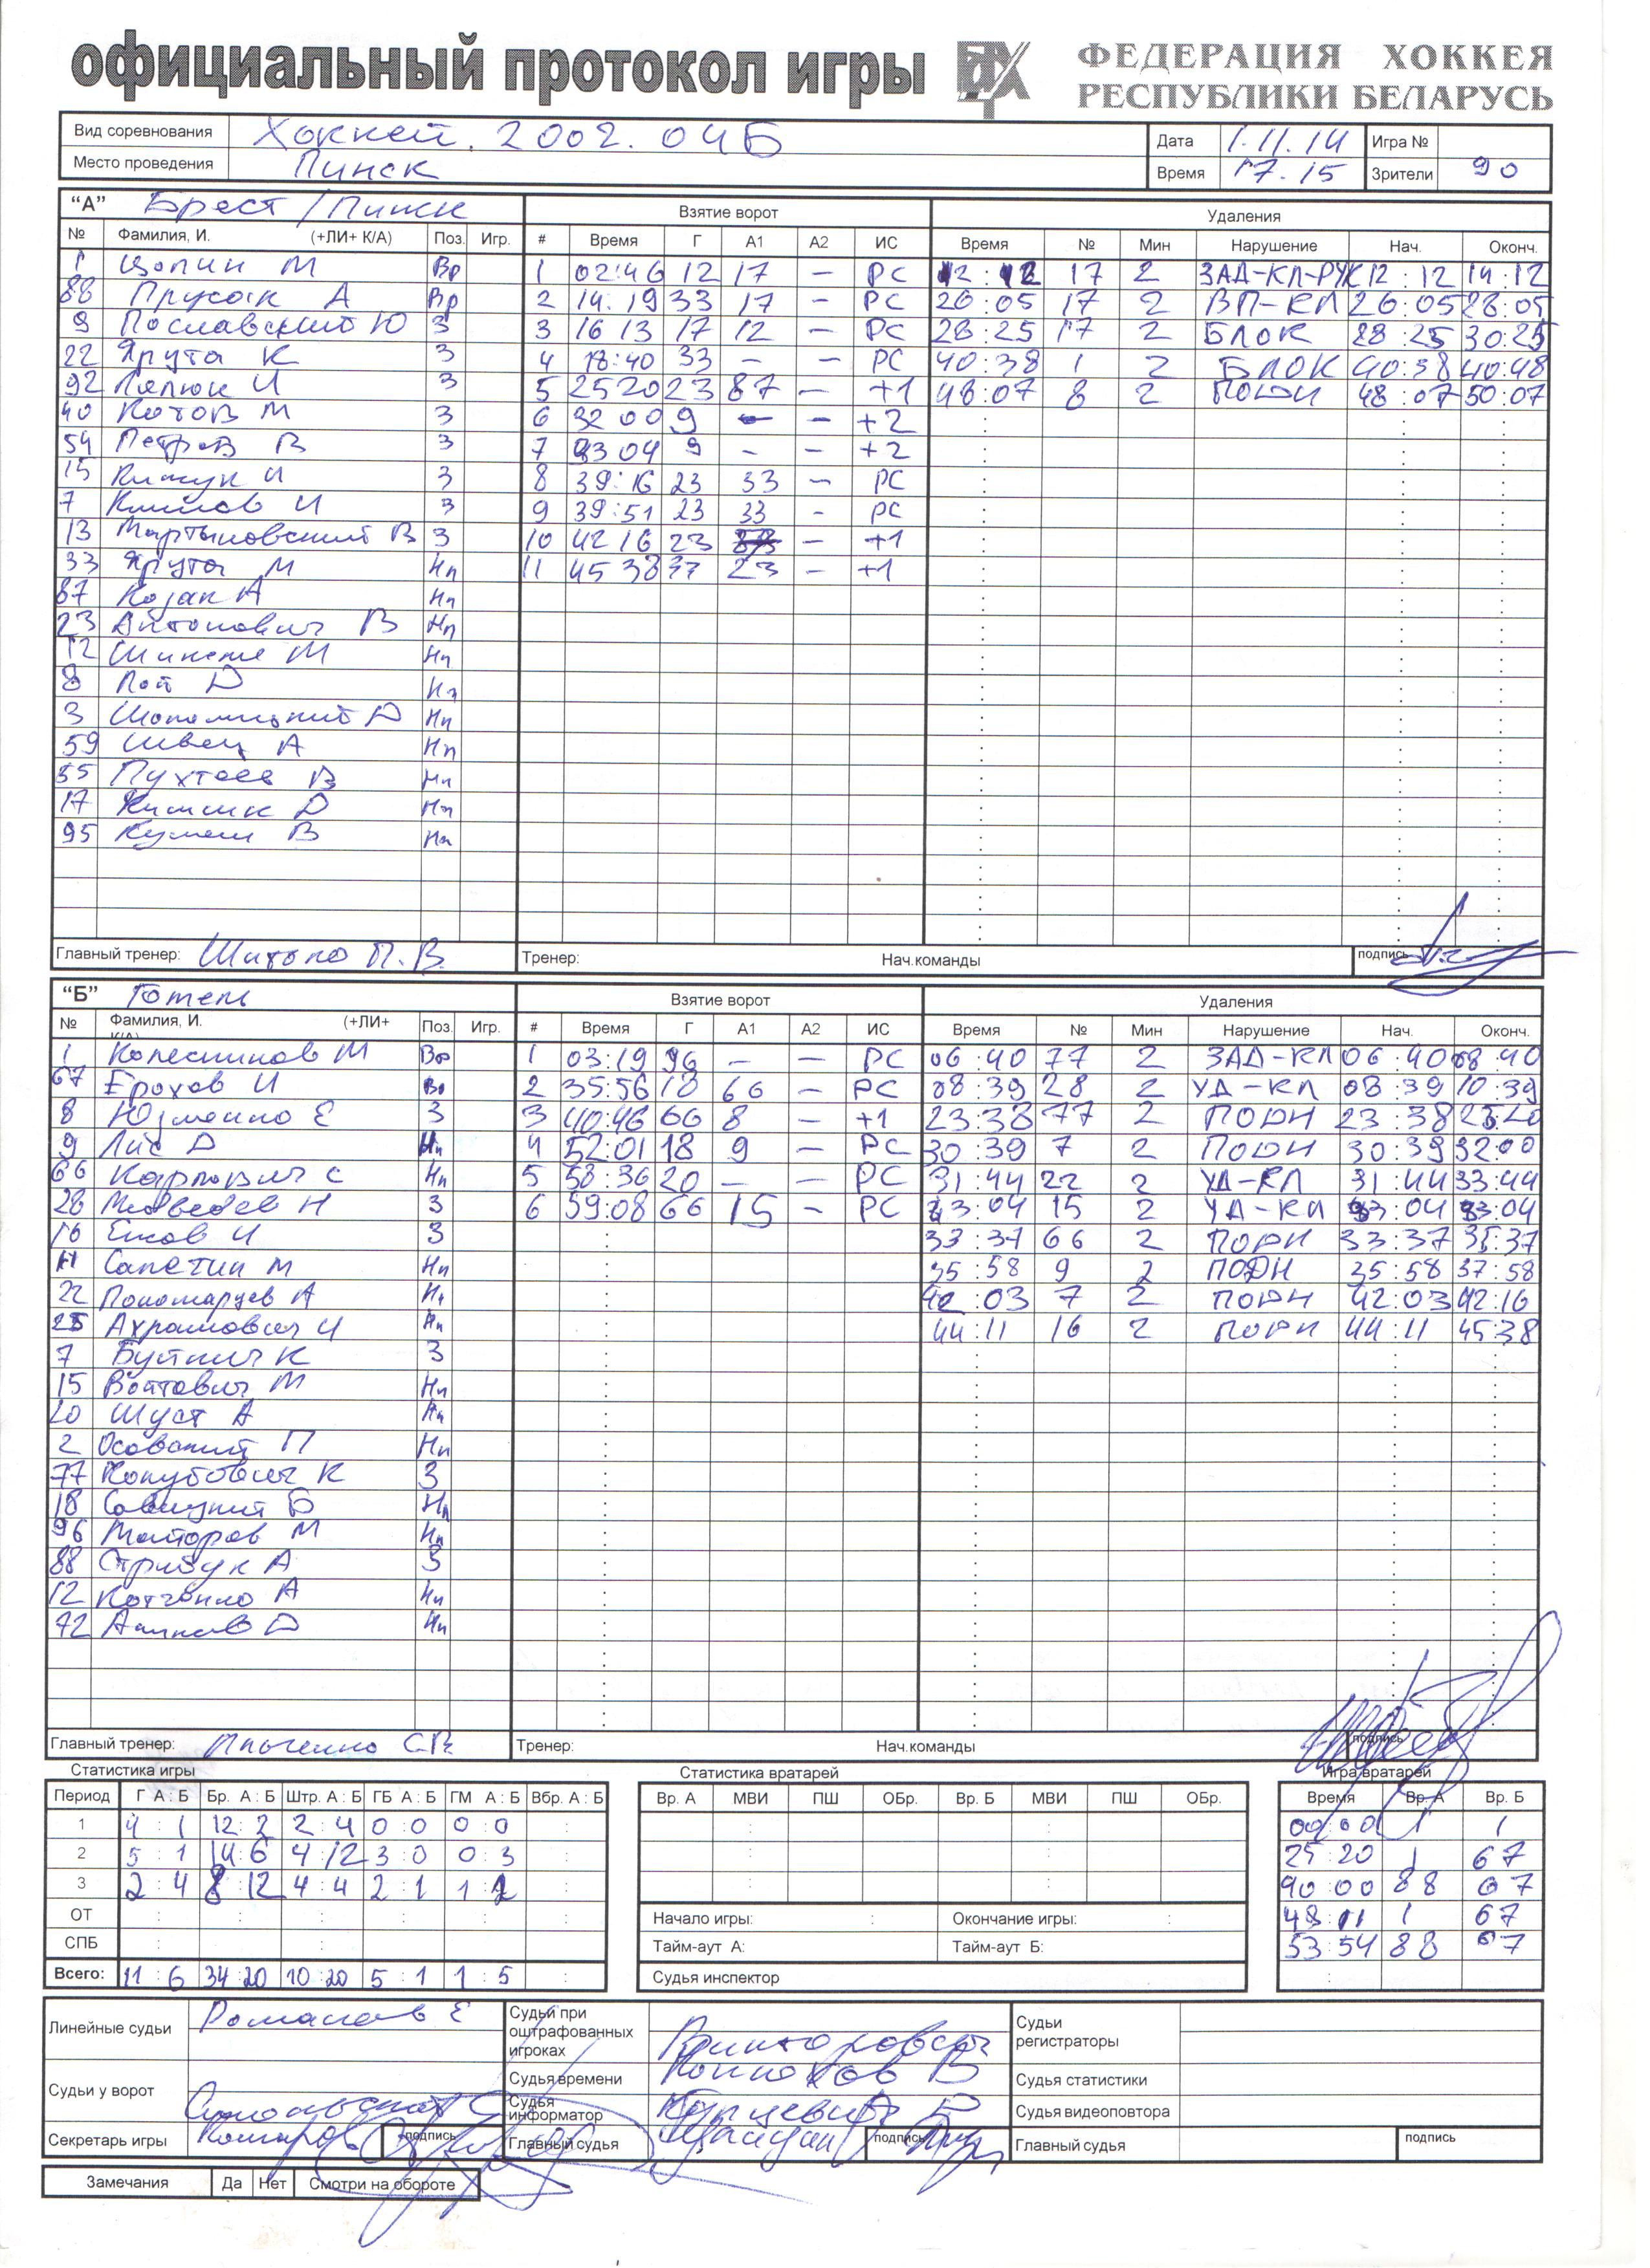 официальный протокол игры
ФЕДЕРАЦИЯ ХОККЕЯ
РЕСПУБЛИКИ БЕЛАРУСЬ
Вид соревнования Хоккей. 2002. ОЧБ Дата 1.11.14 Игра №
Место проведения Пинск Время 17.15 Зрители 90
"А" Брест/Пинск Взятие ворот Удаления
№ Фамилия, И. (+ЛИ+ К/А) Поз. Игр. # Время Г А1 А2 ИС Время № Мин Нарушение Нач. Оконч.
1 Цопин М Вр 1 02:46 12 17 – РС 12:12 17 2 ЗАД-КЛ-РУК 12:12 14:12
88 Прусак А Вр 2 14.19 33 17 – РС 26:05 17 2 ВП-КЛ 26:05 28:05
9 Пославский Ю З 3 16 13 17 12 – РС 28:25 17 2 БЛОК 28:25 30:25
22 Ярута К З 4 18:40 33 – – РС 40:38 1 2 БЛОК 40:38 40:48
92 Лелюк И З 5 25 20 23 87 – +1 48:07 8 2 ПОДН 48:07 50:07
40 Котов М З 6 32 00 9 – – +2
54 Петров В З 7 33 04 9 – – +2
15 Кижук И З 8 39:16 23 33 – РС
7 Климов И З 9 39:51 23 33 – РС
13 Мартыновский В З 10 42 16 23 – +1
33 Ярута М Нп 11 45 38 37 23 – +1
87 Козак А Нп
23 Антонович В Нп
12 М Нп
8 Лой D Нп
3 D Нп
59 Швец А Нп
55 Пухтеев В Нп
17 D Нп
95 В Нп
Главный тренер: П.В. Тренер: Нач.команды подпись
"Б" Гомель Взятие ворот Удаления
№ Фамилия, И. (+ЛИ+ К/А) Поз. Игр. # Время Г А1 А2 ИС Время № Мин Нарушение Нач. Оконч.
1 Колесников М Вр 1 03:19 96 – – РС 06:40 77 2 ЗАД-КЛ 06:40 08:40
67 Ерохов И Вр 2 35:56 18 66 – РС 08:39 28 2 УД-КЛ 08:39 10:39
8 Юзменко Е З 3 40:46 66 8 – +1 23:38 77 2 ПОДН 23:38 25:20
9 Лис D Нп 4 52:01 18 9 – РС 30:39 7 2 ПОДН 30:39 32:00
66 Карпович С Нп 5 58:36 20 – – РС 31:44 22 2 УД-КЛ 31:44 33:44
28 Медведев Н З 6 59:08 66 15 – РС 33:04 15 2 УД-КЛ 33:04 33:04
16 Ежов И З 33:37 66 2 ПОДН 33:37 35:37
11 Сапетин М Нп 35:58 9 2 ПОДН 35:58 37:58
22 Пономарцев А Нп 42:03 7 2 ПОДН 42:03 42:16
25 Ахрамович И Нп 44:11 16 2 ПОДН 44:11 45:38
7 Буйнич К З
15 Войтович М Нп
20 Шуст А Нп
2 Осовский П Нп
77 Копубович К З
18 Савицкий Б Нп
96 Майоров М Нп
88 Стрибук А З
12 Котченко А Нп
72 D Нп
Главный тренер: С.В. Тренер: Нач.команды подпись
Статистика игры Статистика вратарей Игра вратарей
Период Г А:Б Бр. А:Б Штр. А:Б ГБ А:Б ГМ А:Б Вбр. А:Б Вр. А МВИ ПШ ОБр. Вр. Б МВИ ПШ ОБр. Время Вр. А Вр. Б
1 4:1 12:2 2:4 0:0 0:0 00:00 1 1
2 5:1 14:6 4:12 3:0 0:3 25:20 1 67
3 2:4 8:12 4:4 2:1 1:2 40:00 88 67
ОТ Начало игры: Окончание игры: 48:11 1 67
СПБ Тайм-аут А: Тайм-аут Б: 53:54 88 67
Всего: 11:6 34:20 10:20 5:1 1:5 Судья инспектор
Линейные судьи Романов Е Судьи при оштрафованных игроках Викторович Судьи регистраторы
Судьи у ворот Судья времени Конюхов В Судья статистики
Судья информатор Судья видеоповтора
Секретарь игры Комаров подпись Главный судья подпись Главный судья подпись
Замечания Да Нет Смотри на обороте